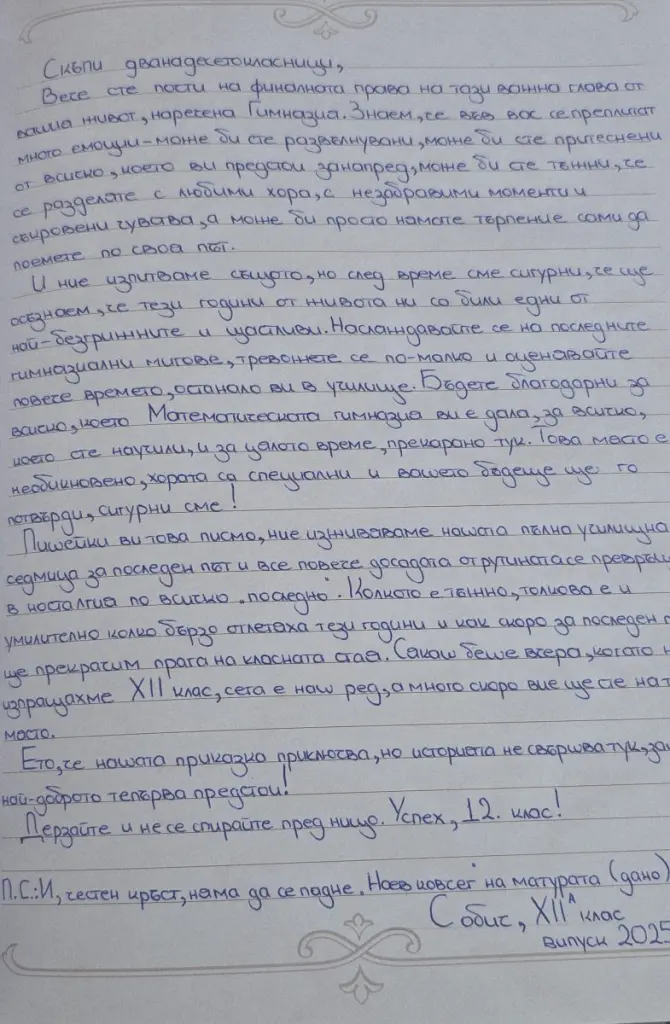 Скъпи дванадесетокласници,
Вече сте почти на финалната права на тази важна глава от
вашия живот, наречена Гимназия. Знаем, че във вас се преплитат
много емоции - може би сте развълнувани, може би сте притеснени
от всичко, което ви предстои занапред, може би сте тъжни, че
се разделяте с любими хора, с незабравими моменти и
съкровени чувства, а може би просто нямате търпение сами да
поемете по своя път.
И ние изпитваме същото, но след време сме сигурни, че ще
осъзнаем, че тези години от живота ни са били едни от
най-безгрижните и щастливи. Наслаждавайте се на последните
гимназиални мигове, тревожете се по-малко и оценявайте
повече времето, останало ви в училище. Бъдете благодарни за
всичко, което Математическата гимназия ви е дала, за всичко,
което сте научили, и за цялото време, прекарано тук. Това място е
необикновено, хората са специални и вашето бъдеще ще го
потвърди, сигурни сме!
Пишейки ви това писмо, ние изживяваме нашата пълна училищна
седмица за последен път и все повече досадата от рутината се превръщ
в носталгия по всичко "последно". Колкото е тъжно, толкова е и
умилително колко бързо отлетяха тези години и как скоро за последен п
ще прекрасим прага на класната стая. Сякаш беше вчера, когато н
изпращахме XII клас, сега е наш ред, а много скоро вие ще сте на т
място.
Ето, че нашата приказка приключва, но историята не свършва тук, за
най-доброто тепърва предстои!
Дерзайте и не се спирайте пред нищо. Успех, 12. клас!
П.С.: И, честен кръст, няма да се падне "Ноев ковчег" на матурата (дано)
С обич, XIIᴬ клас
випуск 2025